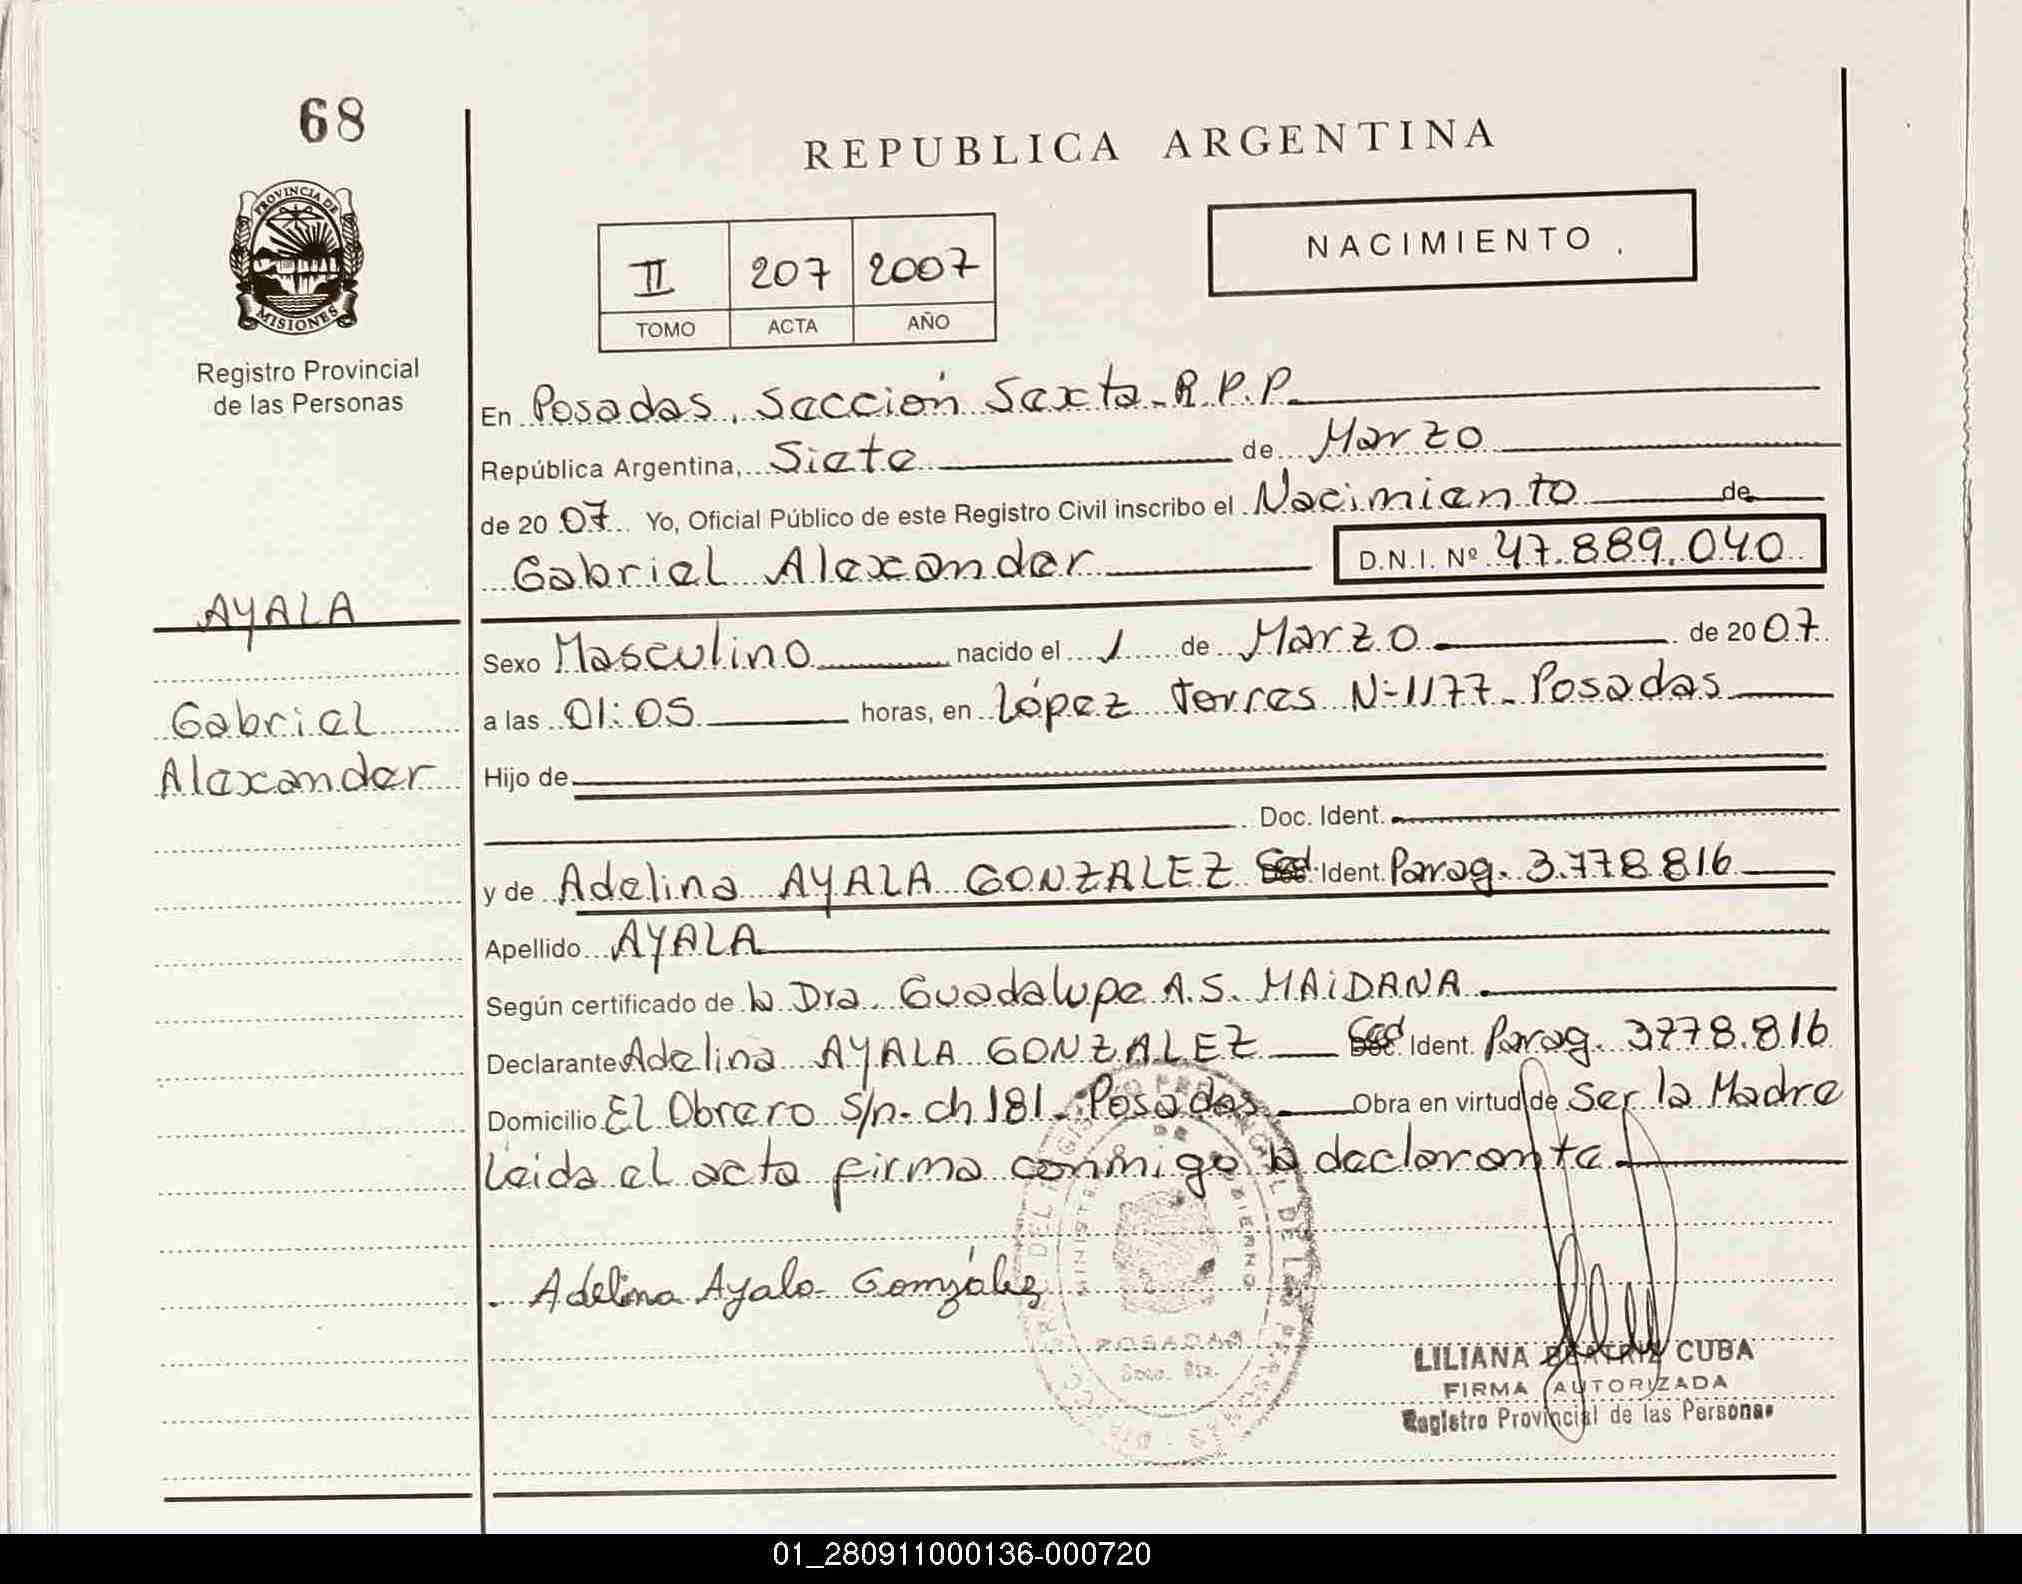 68
REPUBLICA ARGENTINA
PROVINCIA DE
MISIONES
Registro Provincial
de las Personas
II 207 2007
TOMO ACTA AÑO
NACIMIENTO
En Posadas, Sección Sexta. R.P.P.
República Argentina, Siete de Marzo
de 2007 Yo, Oficial Público de este Registro Civil inscribo el Nacimiento de
Gabriel Alexander D.N.I. Nº 47.889.040
AYALA
Gabriel
Alexander
Sexo Masculino nacido el 1 de Marzo de 2007
a las 01:05 horas, en López Torres Nº 1177 - Posadas
Hijo de
Doc. Ident.
y de Adelina AYALA GONZALEZ Ced. Ident. Parag. 3.778.816
Apellido AYALA
Según certificado de la Dra. Guadalupe A.S. MAIDANA
Declarante Adelina AYALA GONZALEZ Ced. Ident. Parag. 3778.816
Domicilio El Obrero s/n- ch 181- Posadas Obra en virtud de Ser la Madre
Leida el acta firma conmigo la declarante
Adelina Ayala González
POSADAS
LILIANA BEATRIZ CUBA
FIRMA AUTORIZADA
Registro Provincial de las Personas
01_280911000136-000720